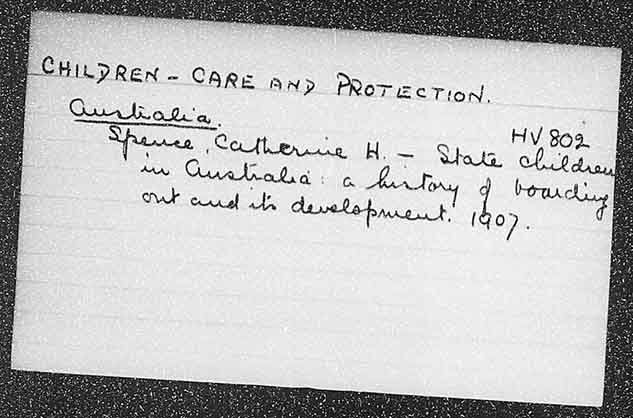 CHILDREN - CARE AND PROTECTION.
Australia.
HV 802
Spence, Catherine H. - State children
in Australia: a history of boarding
out and its development. 1907.